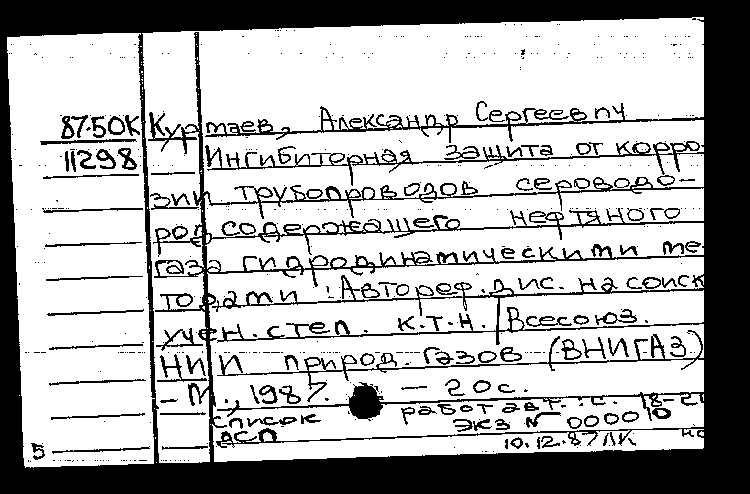 87-50К Куртаев, Александр Сергеевич
11298 Ингибиторная защита от корро-
зии трубопроводов сероводо-
родсодержащего нефтяного
газа гидродинамическими ме-
тодами : Автореф. дис. на соиск.
учен. степ. к.т.н. / Всесоюз.
НИИ природ. газов (ВНИГАЗ)
- М., 1987. — 20с.
список работ авт.: с. 18-20
ДСП экз № 000010
5 10.12.87 ЛК